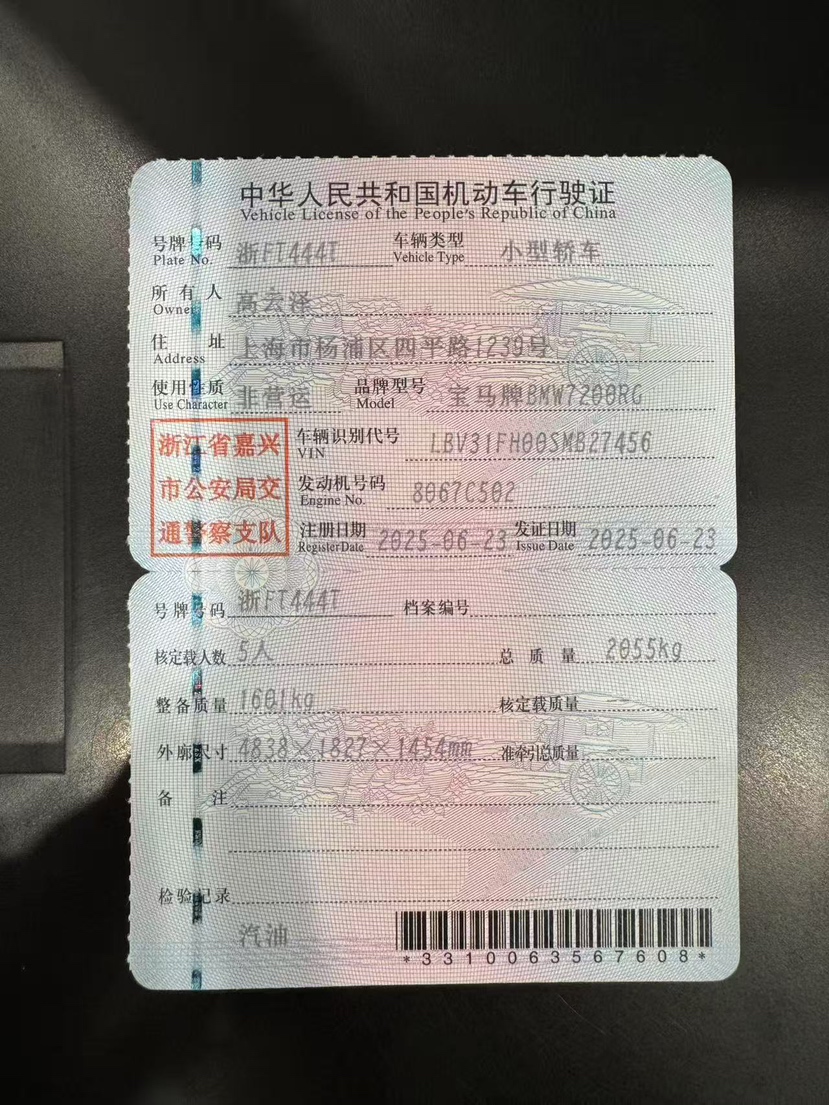 中华人民共和国机动车行驶证
Vehicle License of the People's Republic of China
号牌号码 浙FT444T 车辆类型 小型轿车
Plate No. Vehicle Type
所有人 高云泽
Owner
住址 上海市杨浦区四平路1239号
Address
使用性质 非营运 品牌型号 宝马牌BMW7200RG
Use Character Model
浙江省嘉兴
市公安局交
通警察支队
车辆识别代号 LBV31FH00SMB27456
VIN
发动机号码 8067C502
Engine No.
注册日期 2025-06-23 发证日期 2025-06-23
Register Date Issue Date
号牌号码 浙FT444T 档案编号
核定载人数 5人 总质量 2055kg
整备质量 1601kg 核定载质量 --
外廓尺寸 4838×1827×1454mm 准牵引总质量 --
备注
检验记录
汽油
*3310063567608*